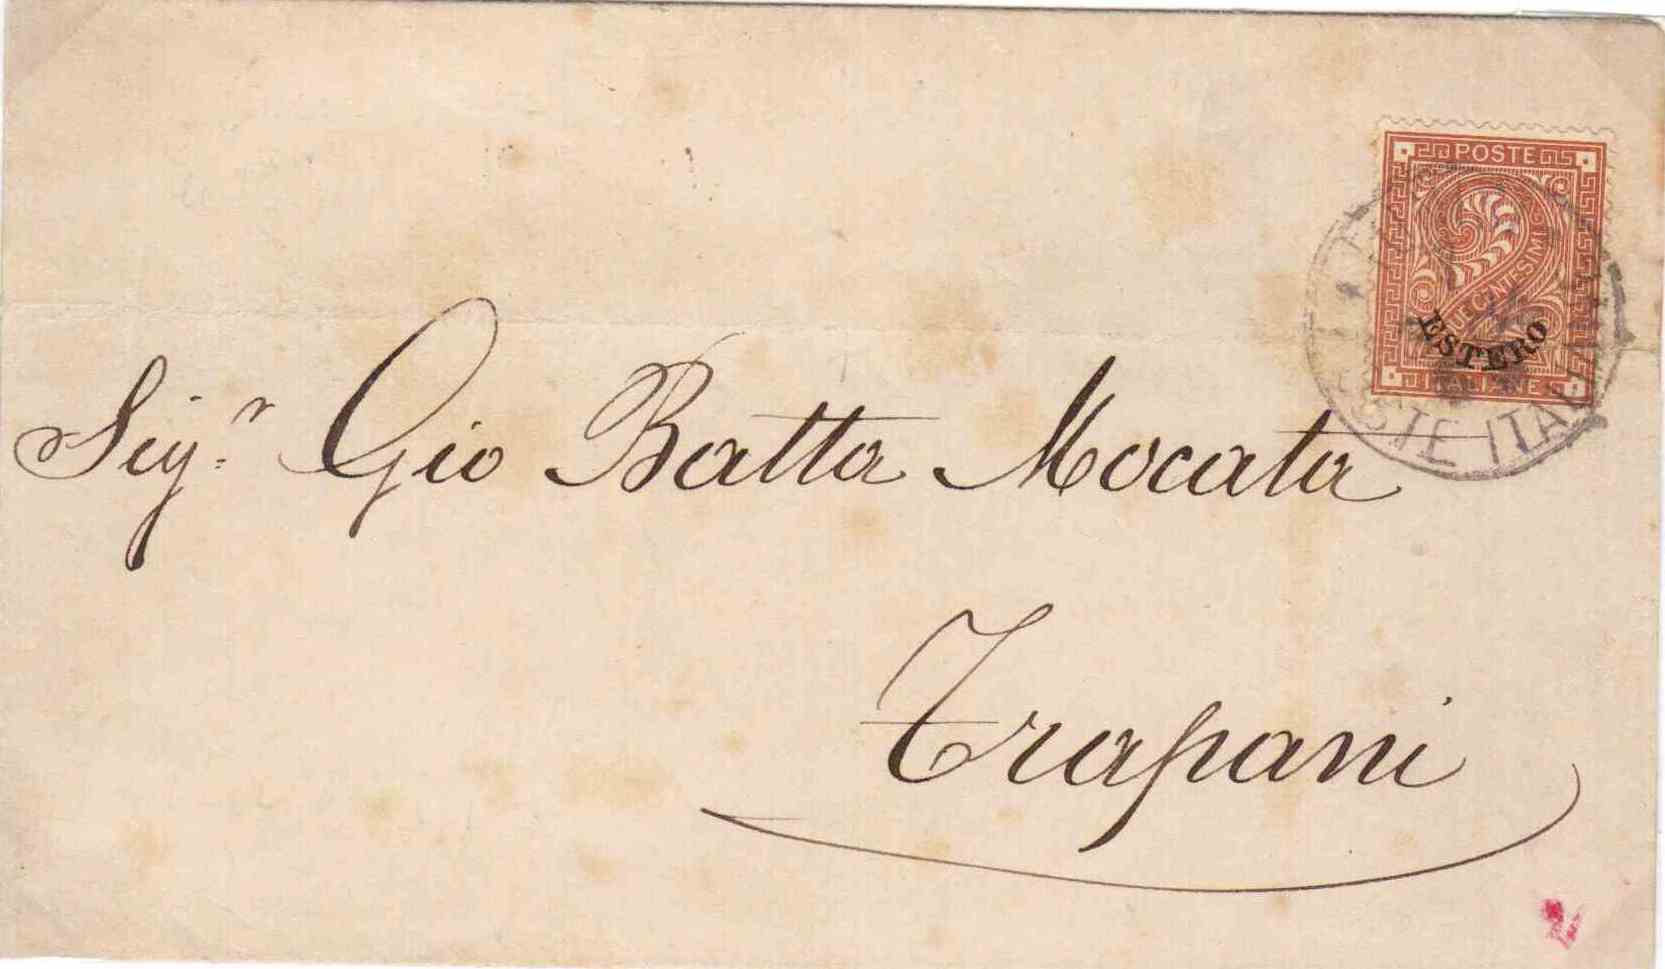 POSTE
DUE CENTESIMI
ESTERO
ITALIANE
POSTE ITALIANE
Sigr. Gio Batta Mocata
Trapani